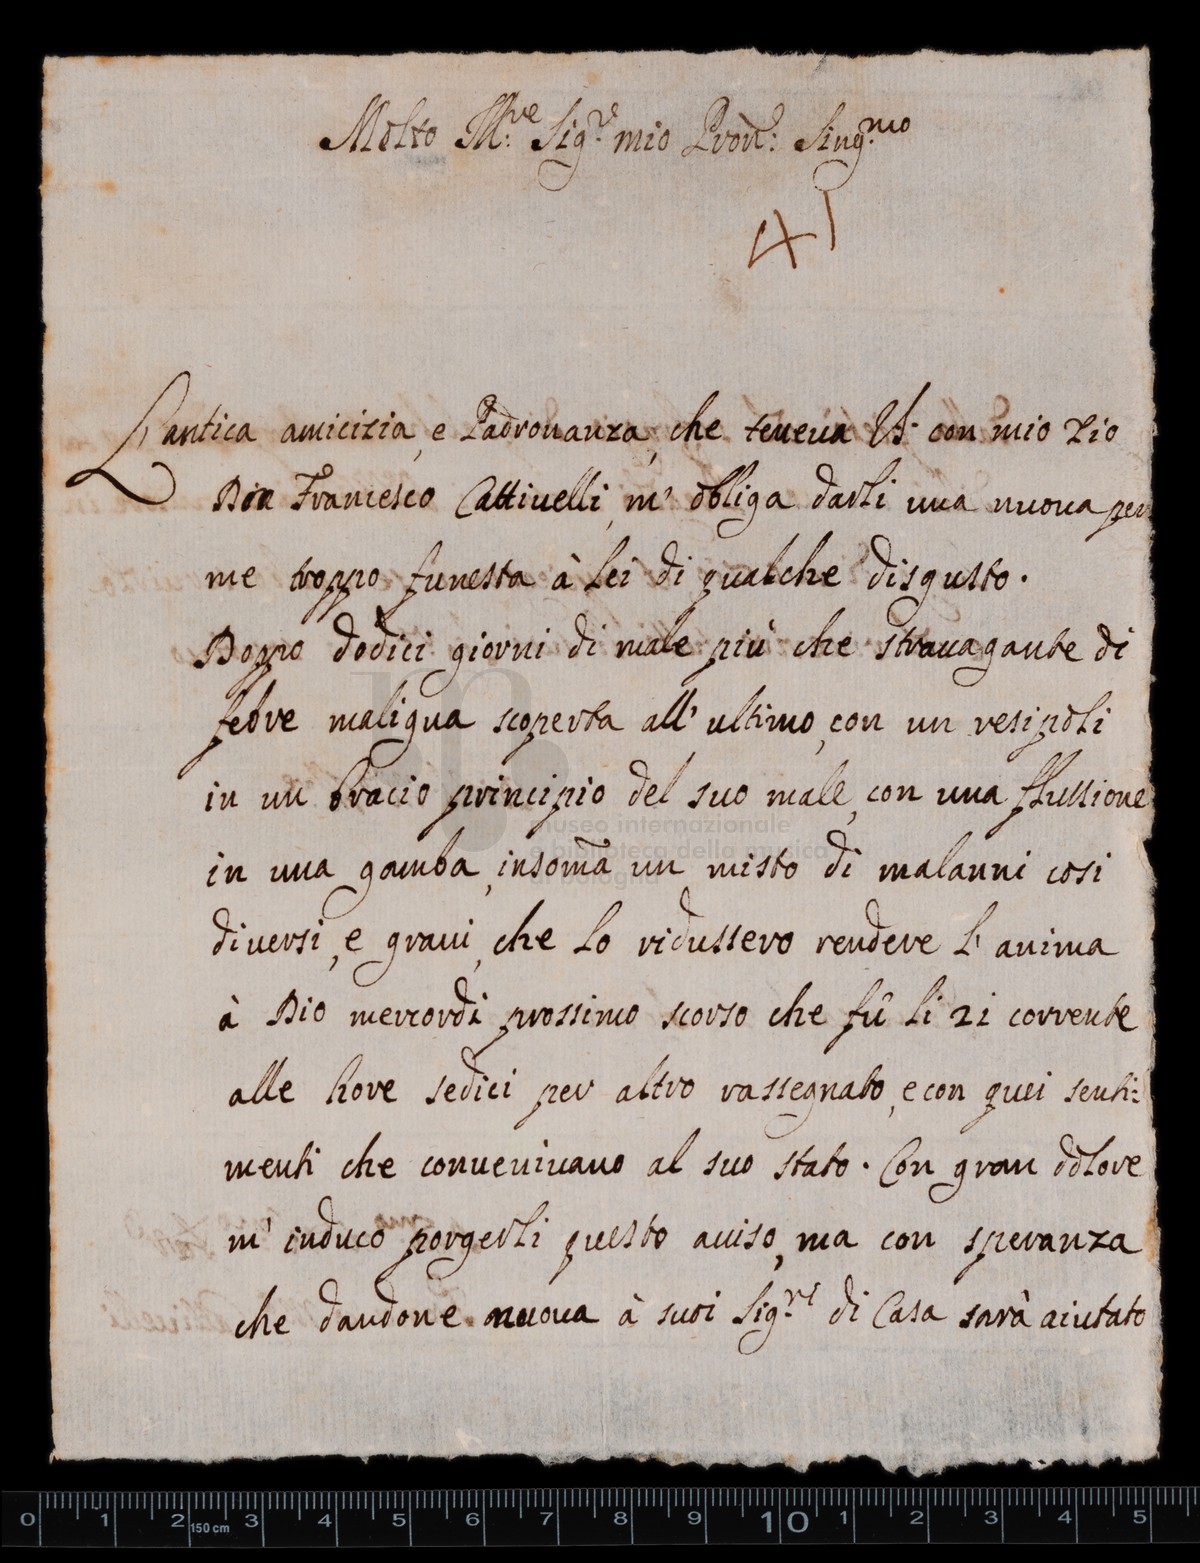 Molto Ill:re Sig:re mio Pron: Sing:mo
41
L'antica amicizia, e Padronanza, che teneua VS. con mio Zio
Don Francesco Cattiuelli, m' obliga darli una nuoua per
me troppo funesta à Lei di qualche disgusto.
Doppo dodici giorni di male più che strauagante di
febre maligna scoperta all' ultimo, con un resipoli
in un bracio principio del suo male, con una flussione
in una gamba, insoma un misto di malanni cosi
diuersi, e graui, che lo ridussero rendere l' anima
à Dio mercordi prossimo scorso che fù li 21 corrente
alle hore sedici per altro rassegnato, e con quei senti:
menti che conueniuano al suo stato. Con gran dolore
m' induco porgerli questo auiso, ma con speranza
che dandone nuoua à suoi Sig:ri di Casa sarà aiutato
museo internazionale
e biblioteca della musica
di bologna
0 1 2 150 cm 3 4 5 6 7 8 9 10 1 2 3 4 5